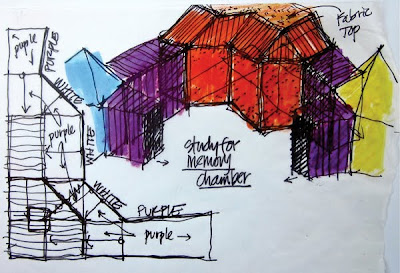 puple
PURPLE
WHITE
purple
WHITE
WHITE
PURPLE
purple
Fabric
Top
Study for
Memory
Chamber